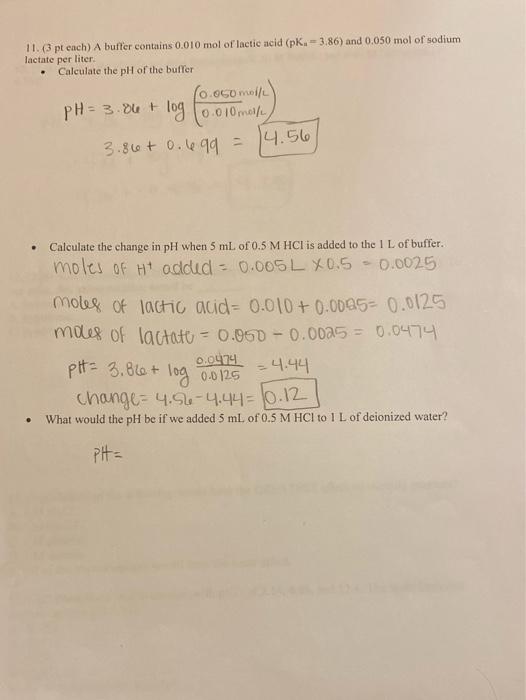 11. (3 pt each) A buffer contains 0.010 mol of lactic acid (pKa = 3.86) and 0.050 mol of sodium
lactate per liter.
• Calculate the pH of the buffer
pH = 3.86 + log (0.050 mol/L / 0.010 mol/L)
3.86 + 0.699 = 4.56
• Calculate the change in pH when 5 mL of 0.5 M HCl is added to the 1 L of buffer.
moles of H+ added = 0.005L x 0.5 = 0.0025
moles of lactic acid = 0.010 + 0.0025 = 0.0125
moles of lactate = 0.050 - 0.0025 = 0.0474
pH = 3.86 + log 0.0474 / 0.0125 = 4.44
change = 4.56 - 4.44 = 0.12
• What would the pH be if we added 5 mL of 0.5 M HCl to 1 L of deionized water?
pH =